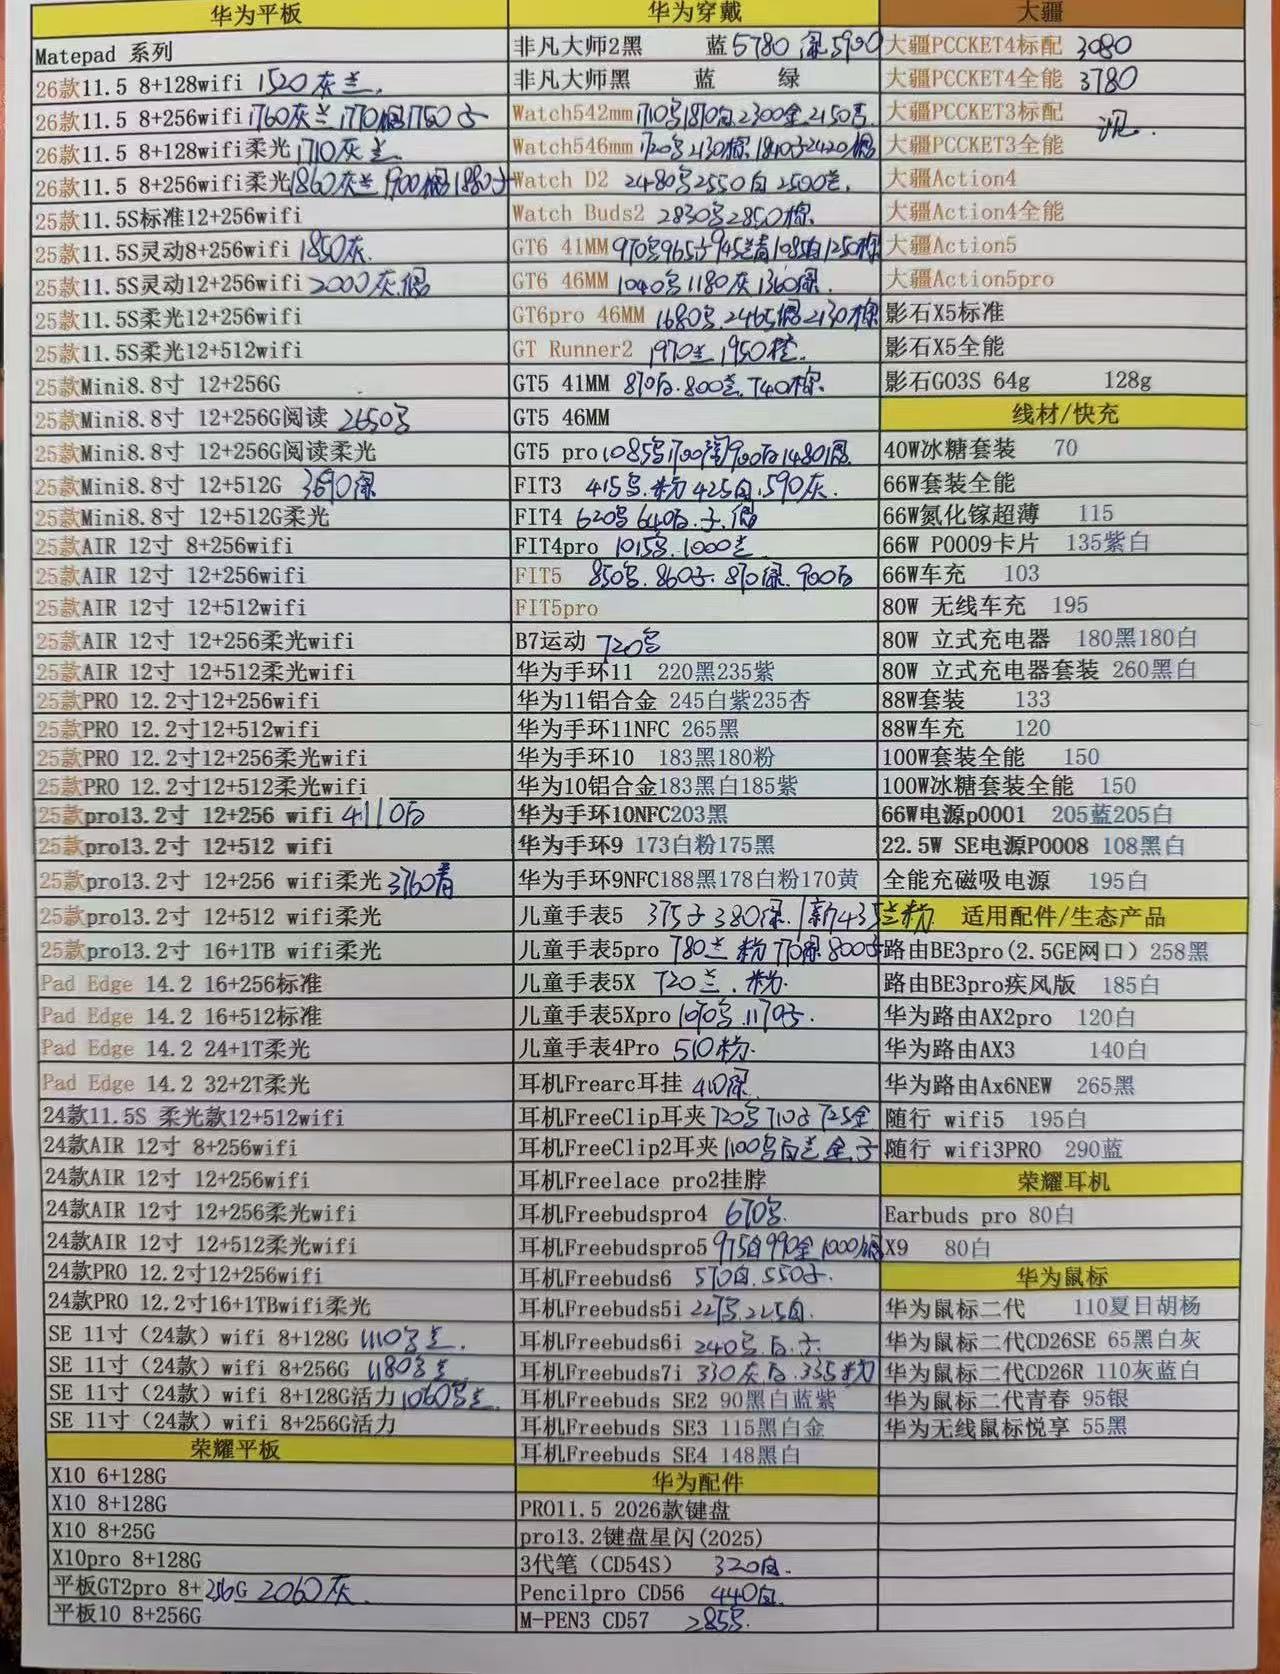 华为平板
Matepad 系列
26款11.5 8+128wifi 1520灰兰.
26款11.5 8+256wifi 1760灰兰1770 1750
26款11.5 8+128wifi柔光 1710灰兰.
26款11.5 8+256wifi柔光 1860灰兰.1900 1880
25款11.5S标准12+256wifi
25款11.5S灵动8+256wifi 1850灰.
25款11.5S灵动12+256wifi 2000灰.
25款11.5S柔光12+256wifi
25款11.5S柔光12+512wifi
25款Mini8.8寸 12+256G
25款Mini8.8寸 12+256G阅读 2650
25款Mini8.8寸 12+256G阅读柔光
25款Mini8.8寸 12+512G 3690
25款Mini8.8寸 12+512G柔光
25款AIR 12寸 8+256wifi
25款AIR 12寸 12+256wifi
25款AIR 12寸 12+512wifi
25款AIR 12寸 12+256柔光wifi
25款AIR 12寸 12+512柔光wifi
25款PRO 12.2寸12+256wifi
25款PRO 12.2寸12+512wifi
25款PRO 12.2寸12+256柔光wifi
25款PRO 12.2寸12+512柔光wifi
25款pro13.2寸 12+256 wifi 4110白
25款pro13.2寸 12+512 wifi
25款pro13.2寸 12+256 wifi柔光 3760青
25款pro13.2寸 12+512 wifi柔光
25款pro13.2寸 16+1TB wifi柔光
Pad Edge 14.2 16+256标准
Pad Edge 14.2 16+512标准
Pad Edge 14.2 24+1T柔光
Pad Edge 14.2 32+2T柔光
24款11.5S 柔光款12+512wifi
24款AIR 12寸 8+256wifi
24款AIR 12寸 12+256wifi
24款AIR 12寸 12+256柔光wifi
24款AIR 12寸 12+512柔光wifi
24款PRO 12.2寸12+256wifi
24款PRO 12.2寸16+1TBwifi柔光
SE 11寸（24款）wifi 8+128G 1110 兰.
SE 11寸（24款）wifi 8+256G 1180 兰.
SE 11寸（24款）wifi 8+128G活力 1060 兰.
SE 11寸（24款）wifi 8+256G活力
荣耀平板
X10 6+128G
X10 8+128G
X10 8+25G
X10pro 8+128G
平板GT2pro 8+256G 2060灰.
平板10 8+256G
华为穿戴
非凡大师2黑 蓝5780 5900
非凡大师黑 蓝 绿
Watch542mm 1710 1870白2300金.2150
Watch546mm 1720 2130棕.1810 2420
Watch D2 2480 2550白2500兰.
Watch Buds2 2830 2850棕.
GT6 41MM 970 965 945兰青1085白1250棕
GT6 46MM 1040 1180灰1360绿.
GT6pro 46MM 1680 .2465 2130棕
GT Runner2 1970兰1950橙.
GT5 41MM 870白.800兰.740棕.
GT5 46MM
GT5 pro 1085 1700 1900白1480
FIT3 415 .粉425白.590灰.
FIT4 620 640白
FIT4pro 1015 .1000兰.
FIT5 850 .860 .870绿.900白
FIT5pro
B7运动 720
华为手环11 220黑235紫
华为11铝合金 245白紫235杏
华为手环11NFC 265黑
华为手环10 183黑180粉
华为10铝合金183黑白185紫
华为手环10NFC203黑
华为手环9 173白粉175黑
华为手环9NFC188黑178白粉170黄
儿童手表5 375 380绿.新435兰粉
儿童手表5pro 780兰粉770绿800
儿童手表5X 720兰.粉.
儿童手表5Xpro 1070 .1170
儿童手表4Pro 510粉.
耳机Frearc耳挂 410绿.
耳机FreeClip耳夹 720 710 725金
耳机FreeClip2耳夹 1100 白兰金
耳机Freelace pro2挂脖
耳机Freebudspro4 670
耳机Freebudspro5 975白990金1000
耳机Freebuds6 570白.550
耳机Freebuds5i 227 .225白.
耳机Freebuds6i 240 .白.
耳机Freebuds7i 330灰白.335粉
耳机Freebuds SE2 90黑白蓝紫
耳机Freebuds SE3 115黑白金
耳机Freebuds SE4 148黑白
华为配件
PRO11.5 2026款键盘
pro13.2键盘星闪(2025)
3代笔（CD54S） 320白.
Pencilpro CD56 440白.
M-PEN3 CD57 285
大疆
大疆PCCKET4标配 3080
大疆PCCKET4全能 3780
大疆PCCKET3标配
大疆PCCKET3全能
大疆Action4
大疆Action4全能
大疆Action5
大疆Action5pro
影石X5标准
影石X5全能
影石GO3S 64g 128g
线材/快充
40W冰糖套装 70
66W套装全能
66W氮化镓超薄 115
66W P0009卡片 135紫白
66W车充 103
80W 无线车充 195
80W 立式充电器 180黑180白
80W 立式充电器套装 260黑白
88W套装 133
88W车充 120
100W套装全能 150
100W冰糖套装全能 150
66W电源p0001 205蓝205白
22.5W SE电源P0008 108黑白
全能充磁吸电源 195白
适用配件/生态产品
路由BE3pro(2.5GE网口）258黑
路由BE3pro疾风版 185白
华为路由AX2pro 120白
华为路由AX3 140白
华为路由Ax6NEW 265黑
随行 wifi5 195白
随行 wifi3PRO 290蓝
荣耀耳机
Earbuds pro 80白
X9 80白
华为鼠标
华为鼠标二代 110夏日胡杨
华为鼠标二代CD26SE 65黑白灰
华为鼠标二代CD26R 110灰蓝白
华为鼠标二代青春 95银
华为无线鼠标悦享 55黑